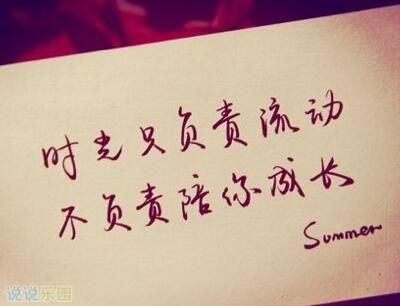 时光只负责流动
不负责陪你成长
Summer
说说乐园